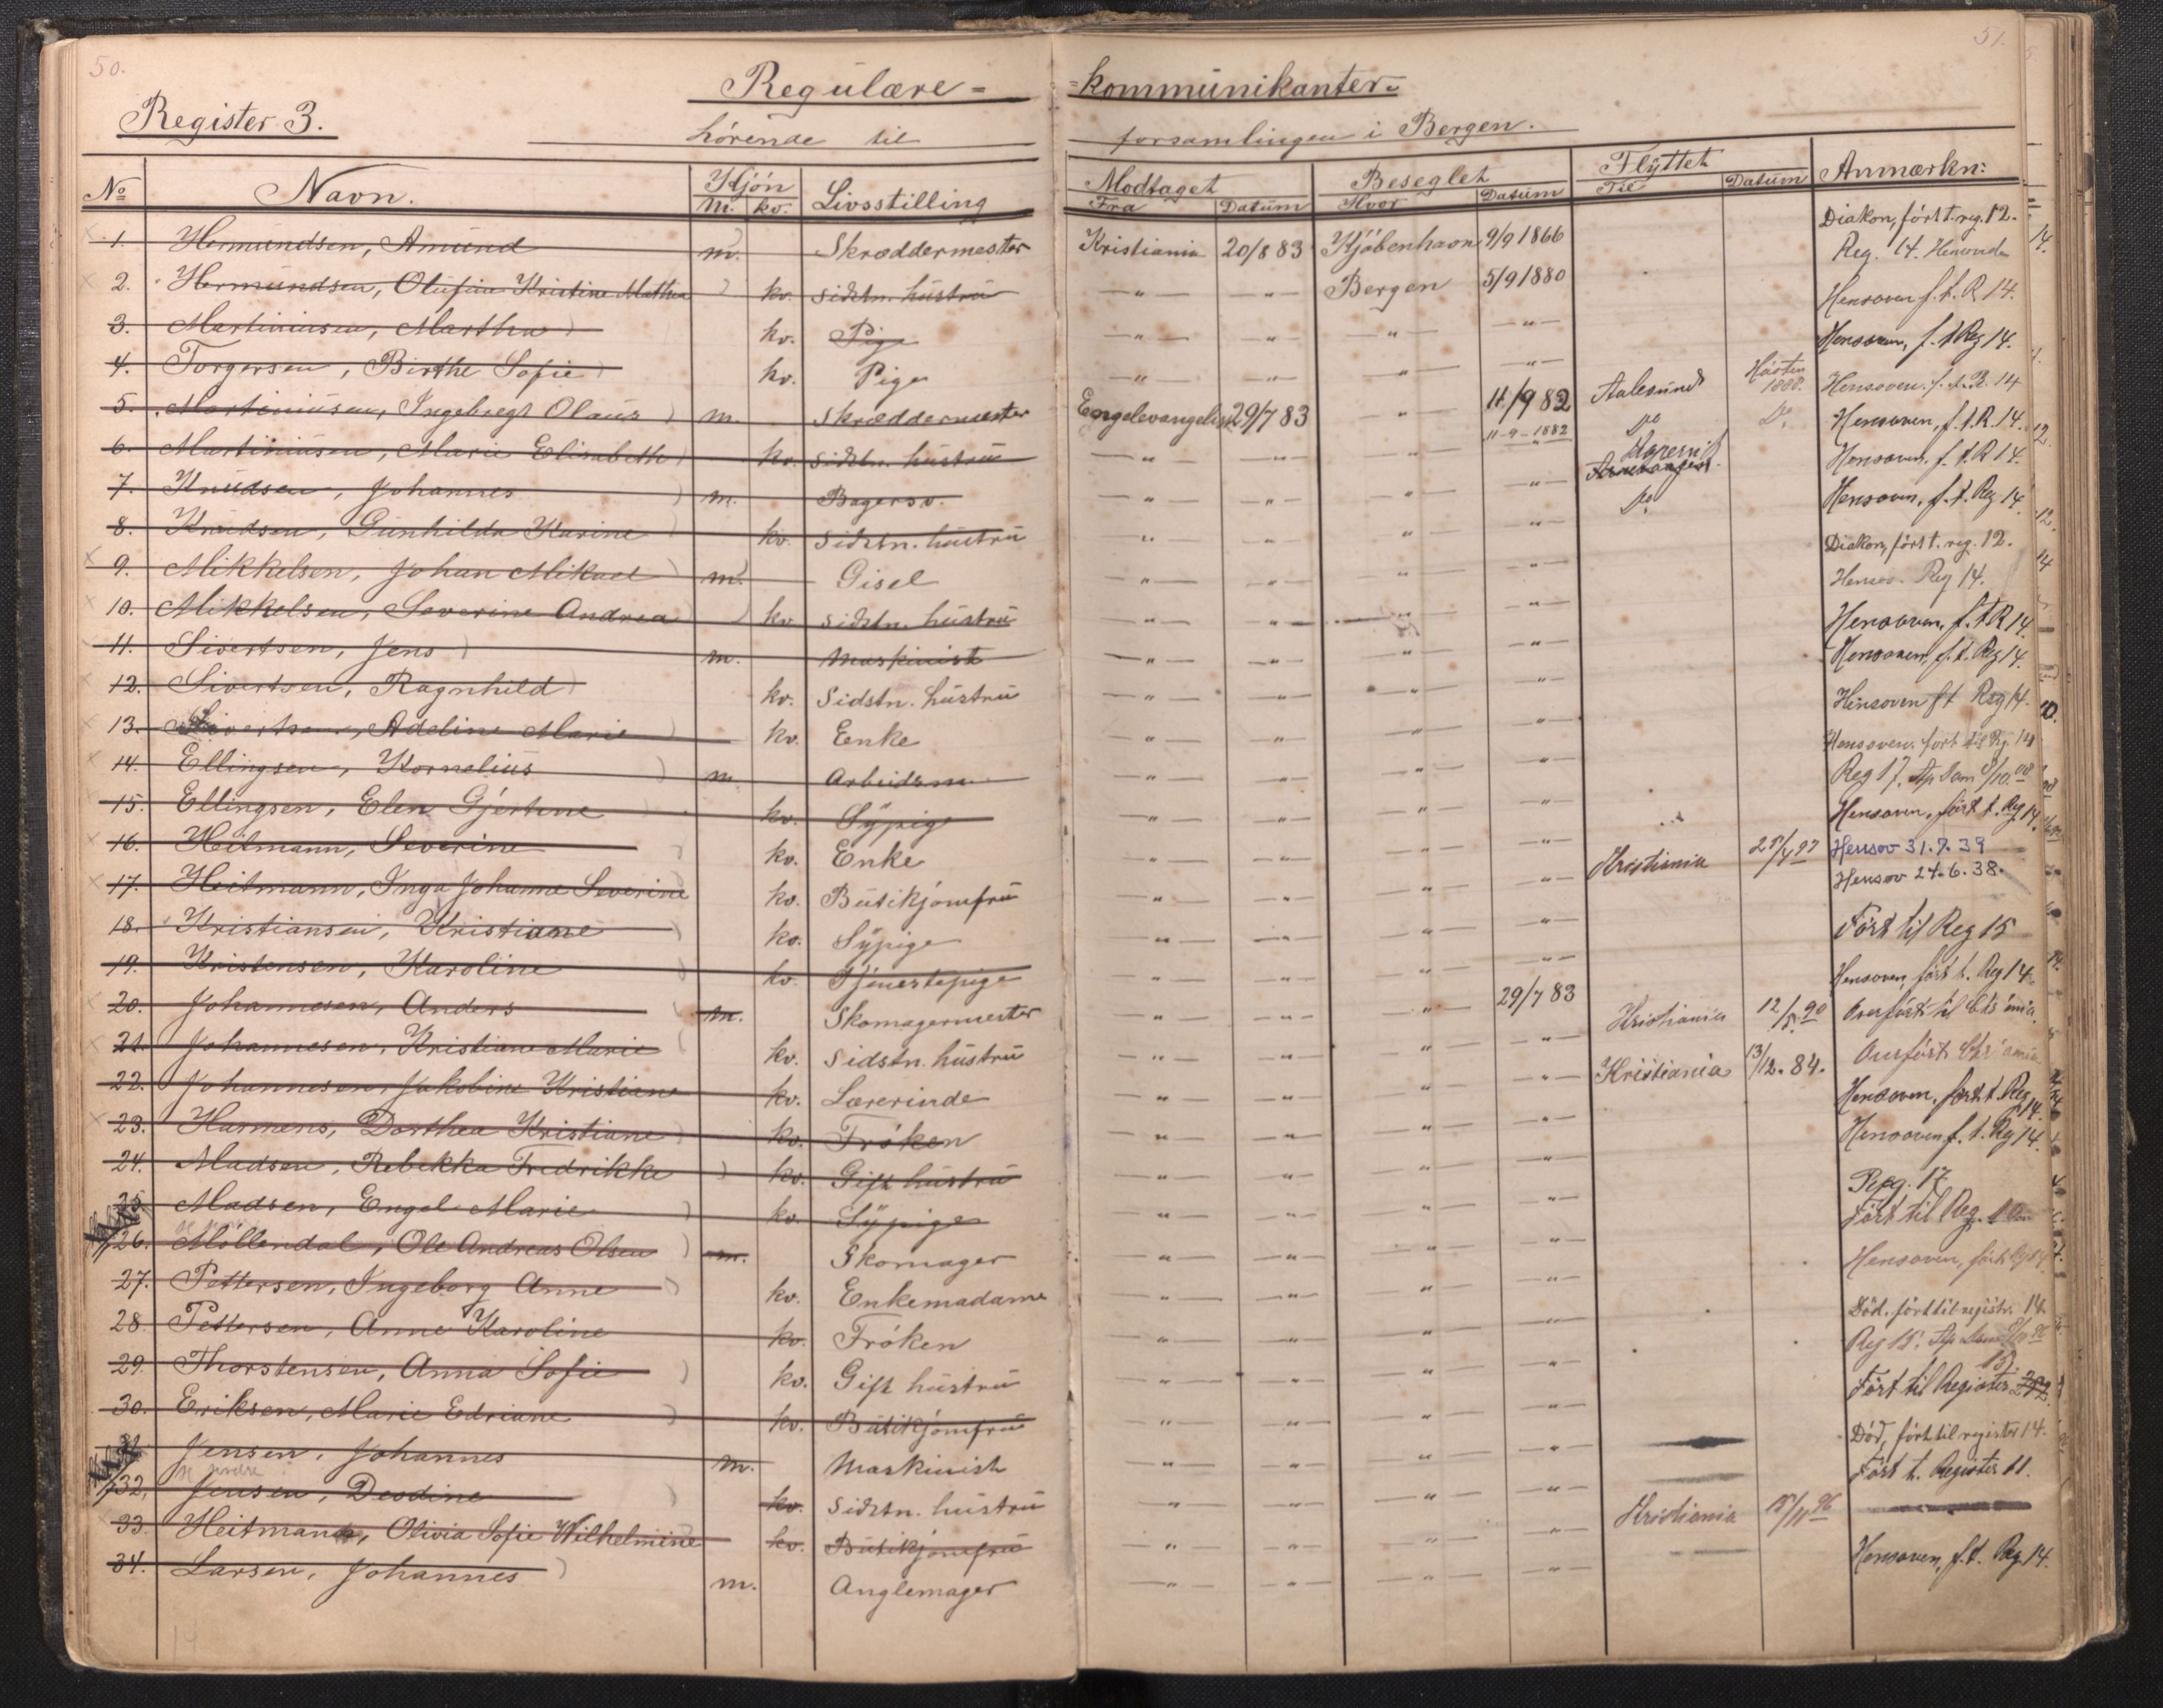 50.
51.
Regulære =
= kommunikanter.
Register 3.
hørende til
forsamlingen i Bergen.
No Navn. Kjón M. kv. Livsstilling Modtaget Fra Datum Beseglet Hvor Datum Flyttet Til Datum Anmærkn:
1. Hermundsen, Amund m. Skræddermester Kristiania 20/8 83 Kjóbenhavn 9/9 1866 Diakon, fórt t. reg. 12.
Reg. 14.
2. Hermundsen, Olufine Kristine Mathea kv. sidstn. hustru " " Bergen 5/9 1880 Hensoven f. t. R 14.
3. Martiniusen, Martha kv. Pige " " " " Hensoven, f. t Reg 14.
4. Torgersen, Birthe Sofie kv. Pige " " " " Hensoven. f. t. R. 14
5. Martiniusen, Ingebregt Olaus m. Skræddermester Engelevangelist 29/7 83 " 11/9 82 Aalesund Hósten 1888. Hensoven, f. t. R. 14.
6. Martiniusen, Marie Elisabeth kv. sidstn. hustru " " 11-9-1882 Do Do Hensoven, f. t. R 14.
7. Knudsen, Johannes m. Bagersv. " " " " Hensoven, f. t. Reg 14.
8. Knudsen, Gunhilda Karine kv. sidstn. hustru " " " " Do
9. Mikkelsen, Johan Mikael m. Gisel " " " " Diakon, fórt t. reg. 12.
Hensov. Reg 14.
10. Mikkelsen, Severine Andrea kv sidstn. hustru " " " " Hensoven, f. t. R 14.
11. Sivertsen, Jens m. Maskinist " " " " Hensoven, f. t. Reg 14.
12. Sivertsen, Ragnhild kv. Sidstn. hustru " " " " Hensoven ft Reg 14.
13. Sivertsen, Adeline Marie kv. Enke " " " " Hensoven. fórt til Rg. 14
14. Ellingsen, Kornelius m. Arbeidsm. " " " " Reg 17.
15. Ellingsen, Elen Gjertine kv. Sypige " " " " Hensoven, fórt t. Reg 14.
16. Heitmann, Severine kv. Enke " " " " Kristiania Hensov 31.7.39
17. Heitmann, Inga Johanne Severine kv. Butikjomfru " " " " Hensov 24.6.38.
18. Kristiansen, Kristiane kv. Sypige " " " " Fórt til Reg 15
19. Kristensen, Karoline kv. Tjenestepige " " " " Hensoven, fórt t. Reg 14.
20. Johannesen, Anders m. Skomagermester " " " 29/7 83 Kristiania
21. Johannesen, Kristiane Marie kv. sidstn. hustru " " " " Kristiania 13/12. 84.
22. Johannesen, Jakobine Kristiane kv. Lærerinde " " " " Hensoven, fórt t. Reg 14.
23. Harmens, Dorthea Kristiane kv. Fróken " " " " Hensoven f. t. Reg 14.
24. Madsen, Rebekka Fredrikke kv. Gift hustru " " " " Reg. 17
25. Madsen, Engel Marie kv. Sypige " " " " Fórt til Reg. 10
26. Móllendal, Ole Andreas Olsen m. Skomager " " " " Hensoven, fórt Rg 14
27. Pettersen, Ingeborg Anne kv. Enkemadame " " " "
28. Pettersen, Anne Karoline kv. Fróken " " " " Dód. fórt til registr. 14.
Reg 15.
29. Thorstensen, Anna Sofie kv. Gift hustru " " " " Fórt til Register
30. Eriksen, Marie Edriane kv. Butikjomfru " " " "
31. Jensen, Johannes m. Maskinist " " " " Dód, fórt til register 14.
32. Jensen, Desdine kv. sidstn. hustru " " " " Fórt t. Register 11.
33. Heitmann, Olivia Sofie Wilhelmine kv. Butikjomfru " " " " Kristiania
34. Larsen, Johannes m. Anglemager " " " " Hensoven, f. t. Reg. 14.
14